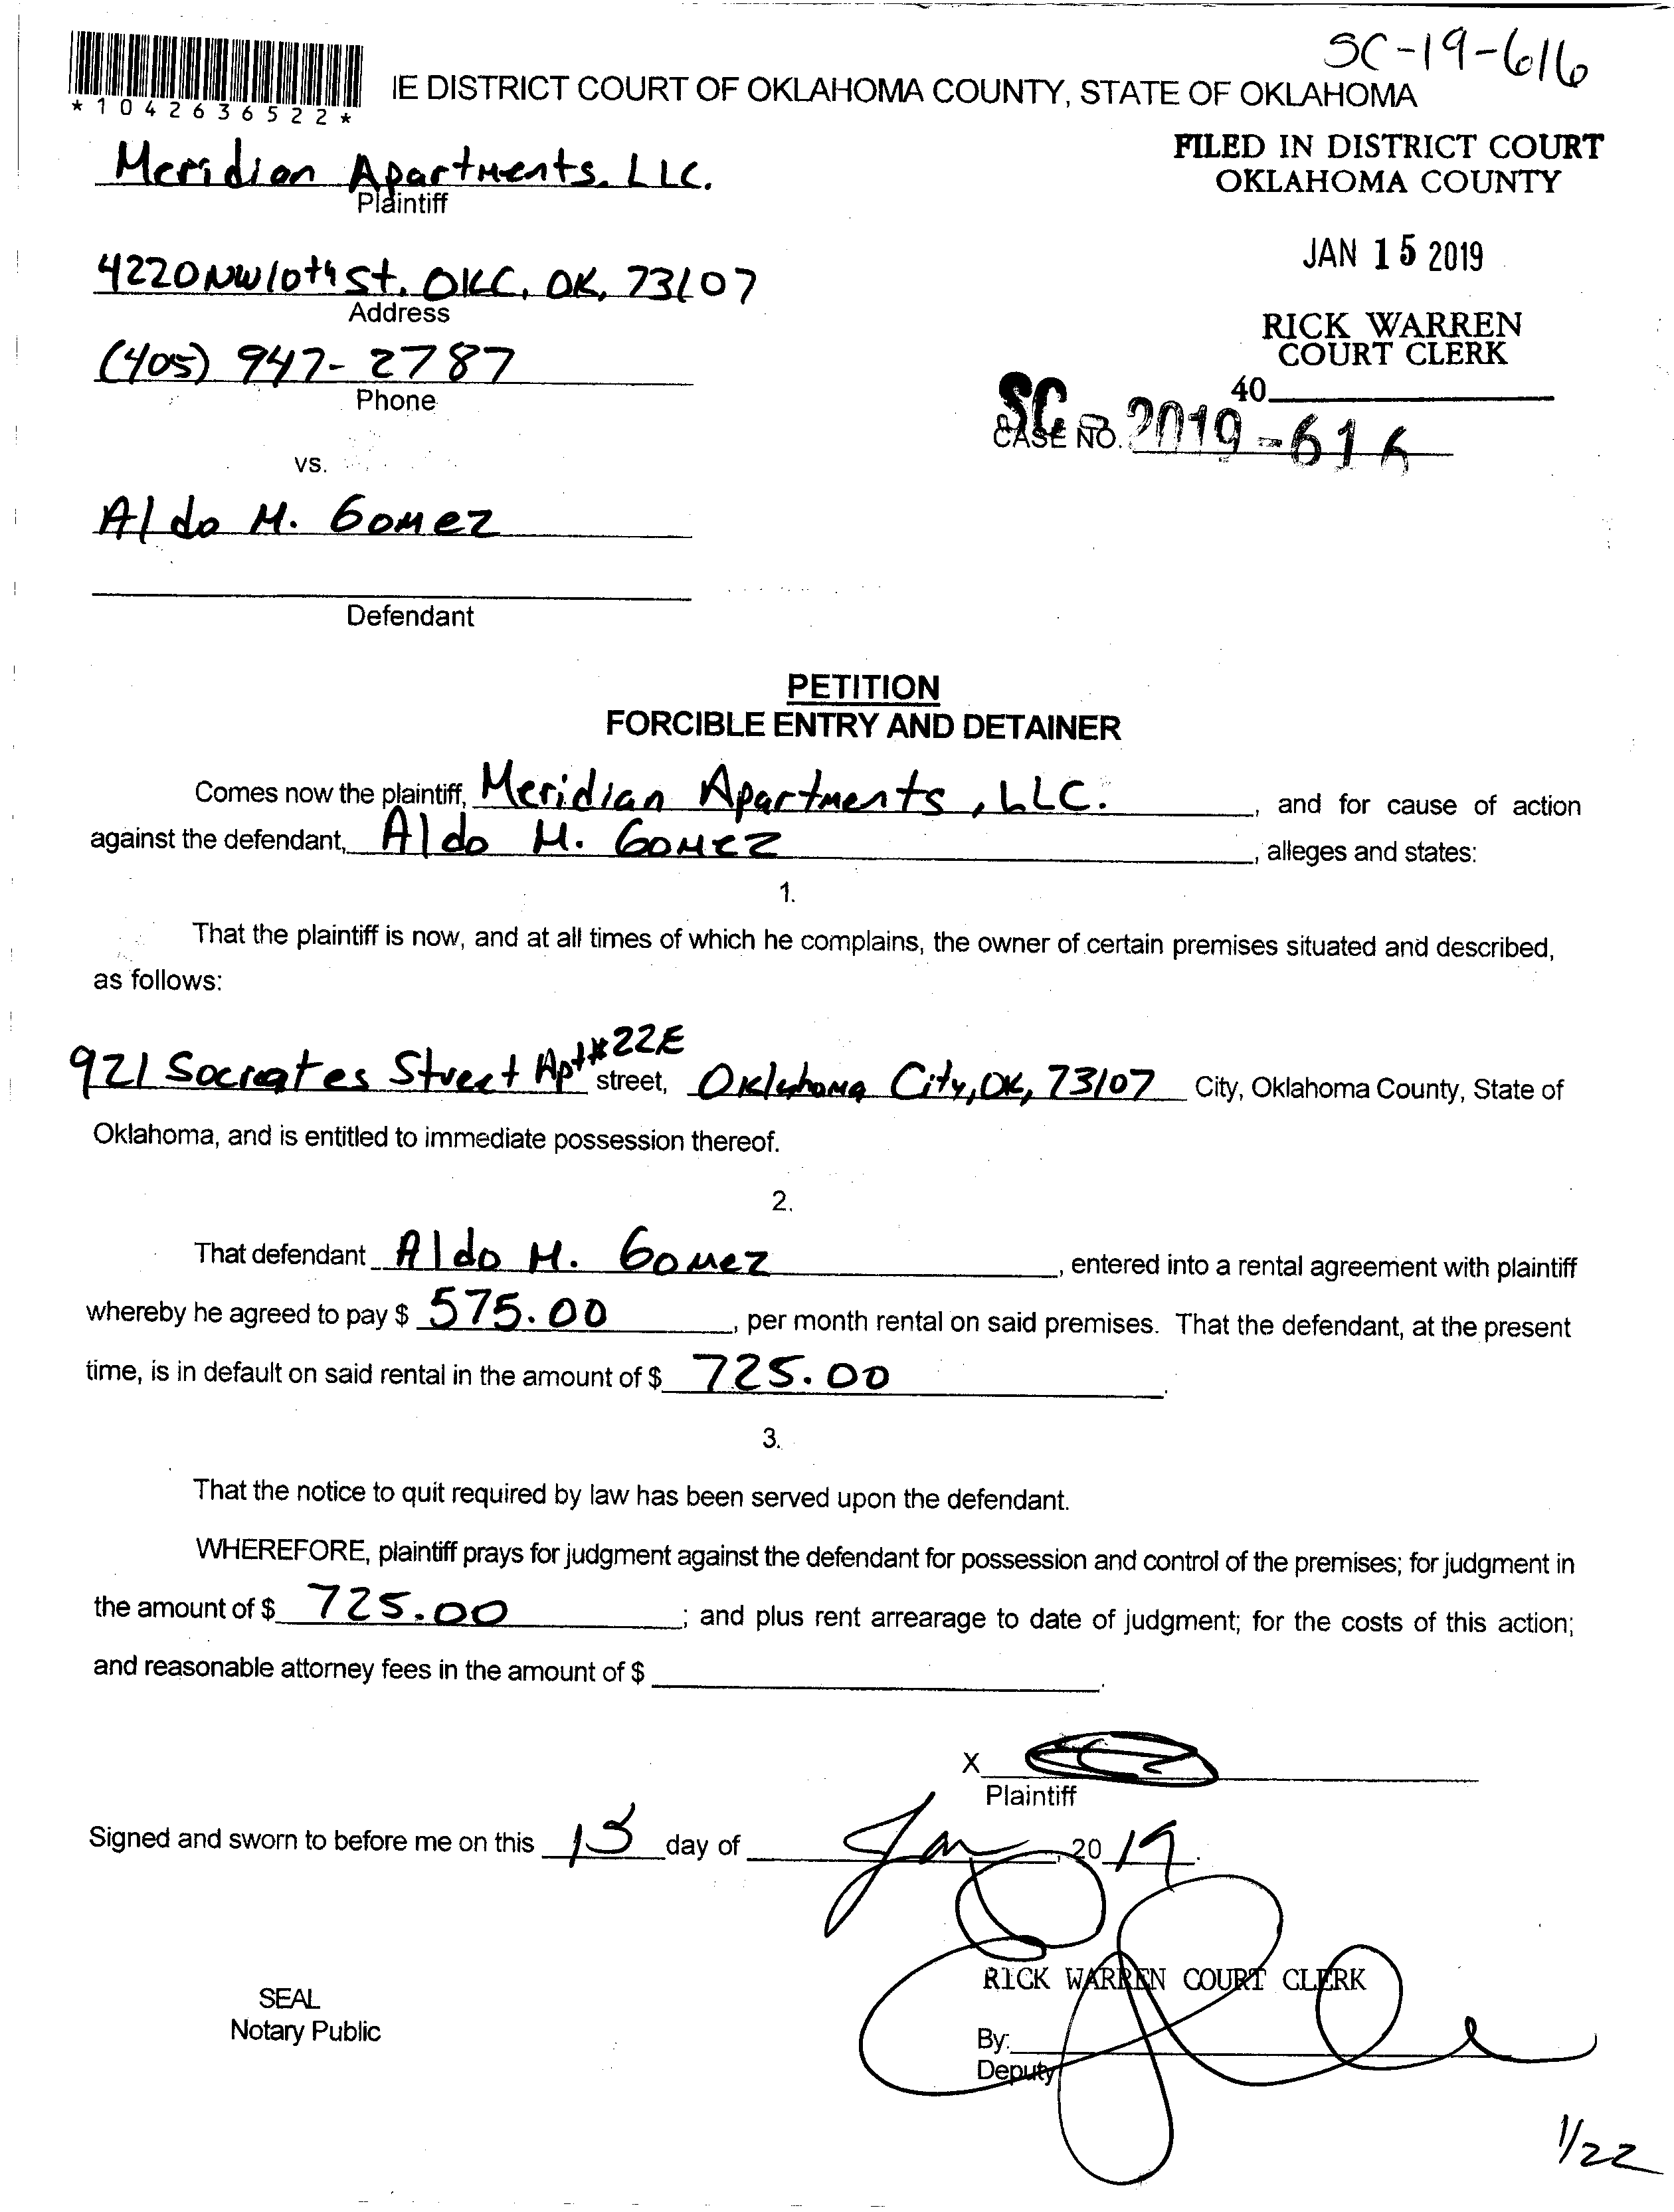 SC-19-616
*1042636522*
IE DISTRICT COURT OF OKLAHOMA COUNTY, STATE OF OKLAHOMA
FILED IN DISTRICT COURT
OKLAHOMA COUNTY
Meridian Apartments, LLC.
Plaintiff
JAN 15 2019
4220 NW 10th St. OKC, OK, 73107
Address
RICK WARREN
COURT CLERK
(405) 947-2787
Phone
40
SC - 2019-616
CASE NO.
vs.
Aldo M. Gomez
Defendant
PETITION
FORCIBLE ENTRY AND DETAINER
Comes now the plaintiff, Meridian Apartments, LLC. , and for cause of action
against the defendant, Aldo M. Gomez , alleges and states:
1.
That the plaintiff is now, and at all times of which he complains, the owner of certain premises situated and described,
as follows:
921 Socrates Street Apt#22E street, Oklahoma City, OK, 73107 City, Oklahoma County, State of
Oklahoma, and is entitled to immediate possession thereof.
2.
That defendant Aldo M. Gomez , entered into a rental agreement with plaintiff
whereby he agreed to pay $ 575.00 , per month rental on said premises. That the defendant, at the present
time, is in default on said rental in the amount of $ 725.00 .
3.
That the notice to quit required by law has been served upon the defendant.
WHEREFORE, plaintiff prays for judgment against the defendant for possession and control of the premises; for judgment in
the amount of $ 725.00 ; and plus rent arrearage to date of judgment; for the costs of this action;
and reasonable attorney fees in the amount of $ .
X
Plaintiff
Signed and sworn to before me on this 15 day of Jan , 20 19 .
RICK WARREN COURT CLERK
SEAL
Notary Public
By:
Deputy
1/22